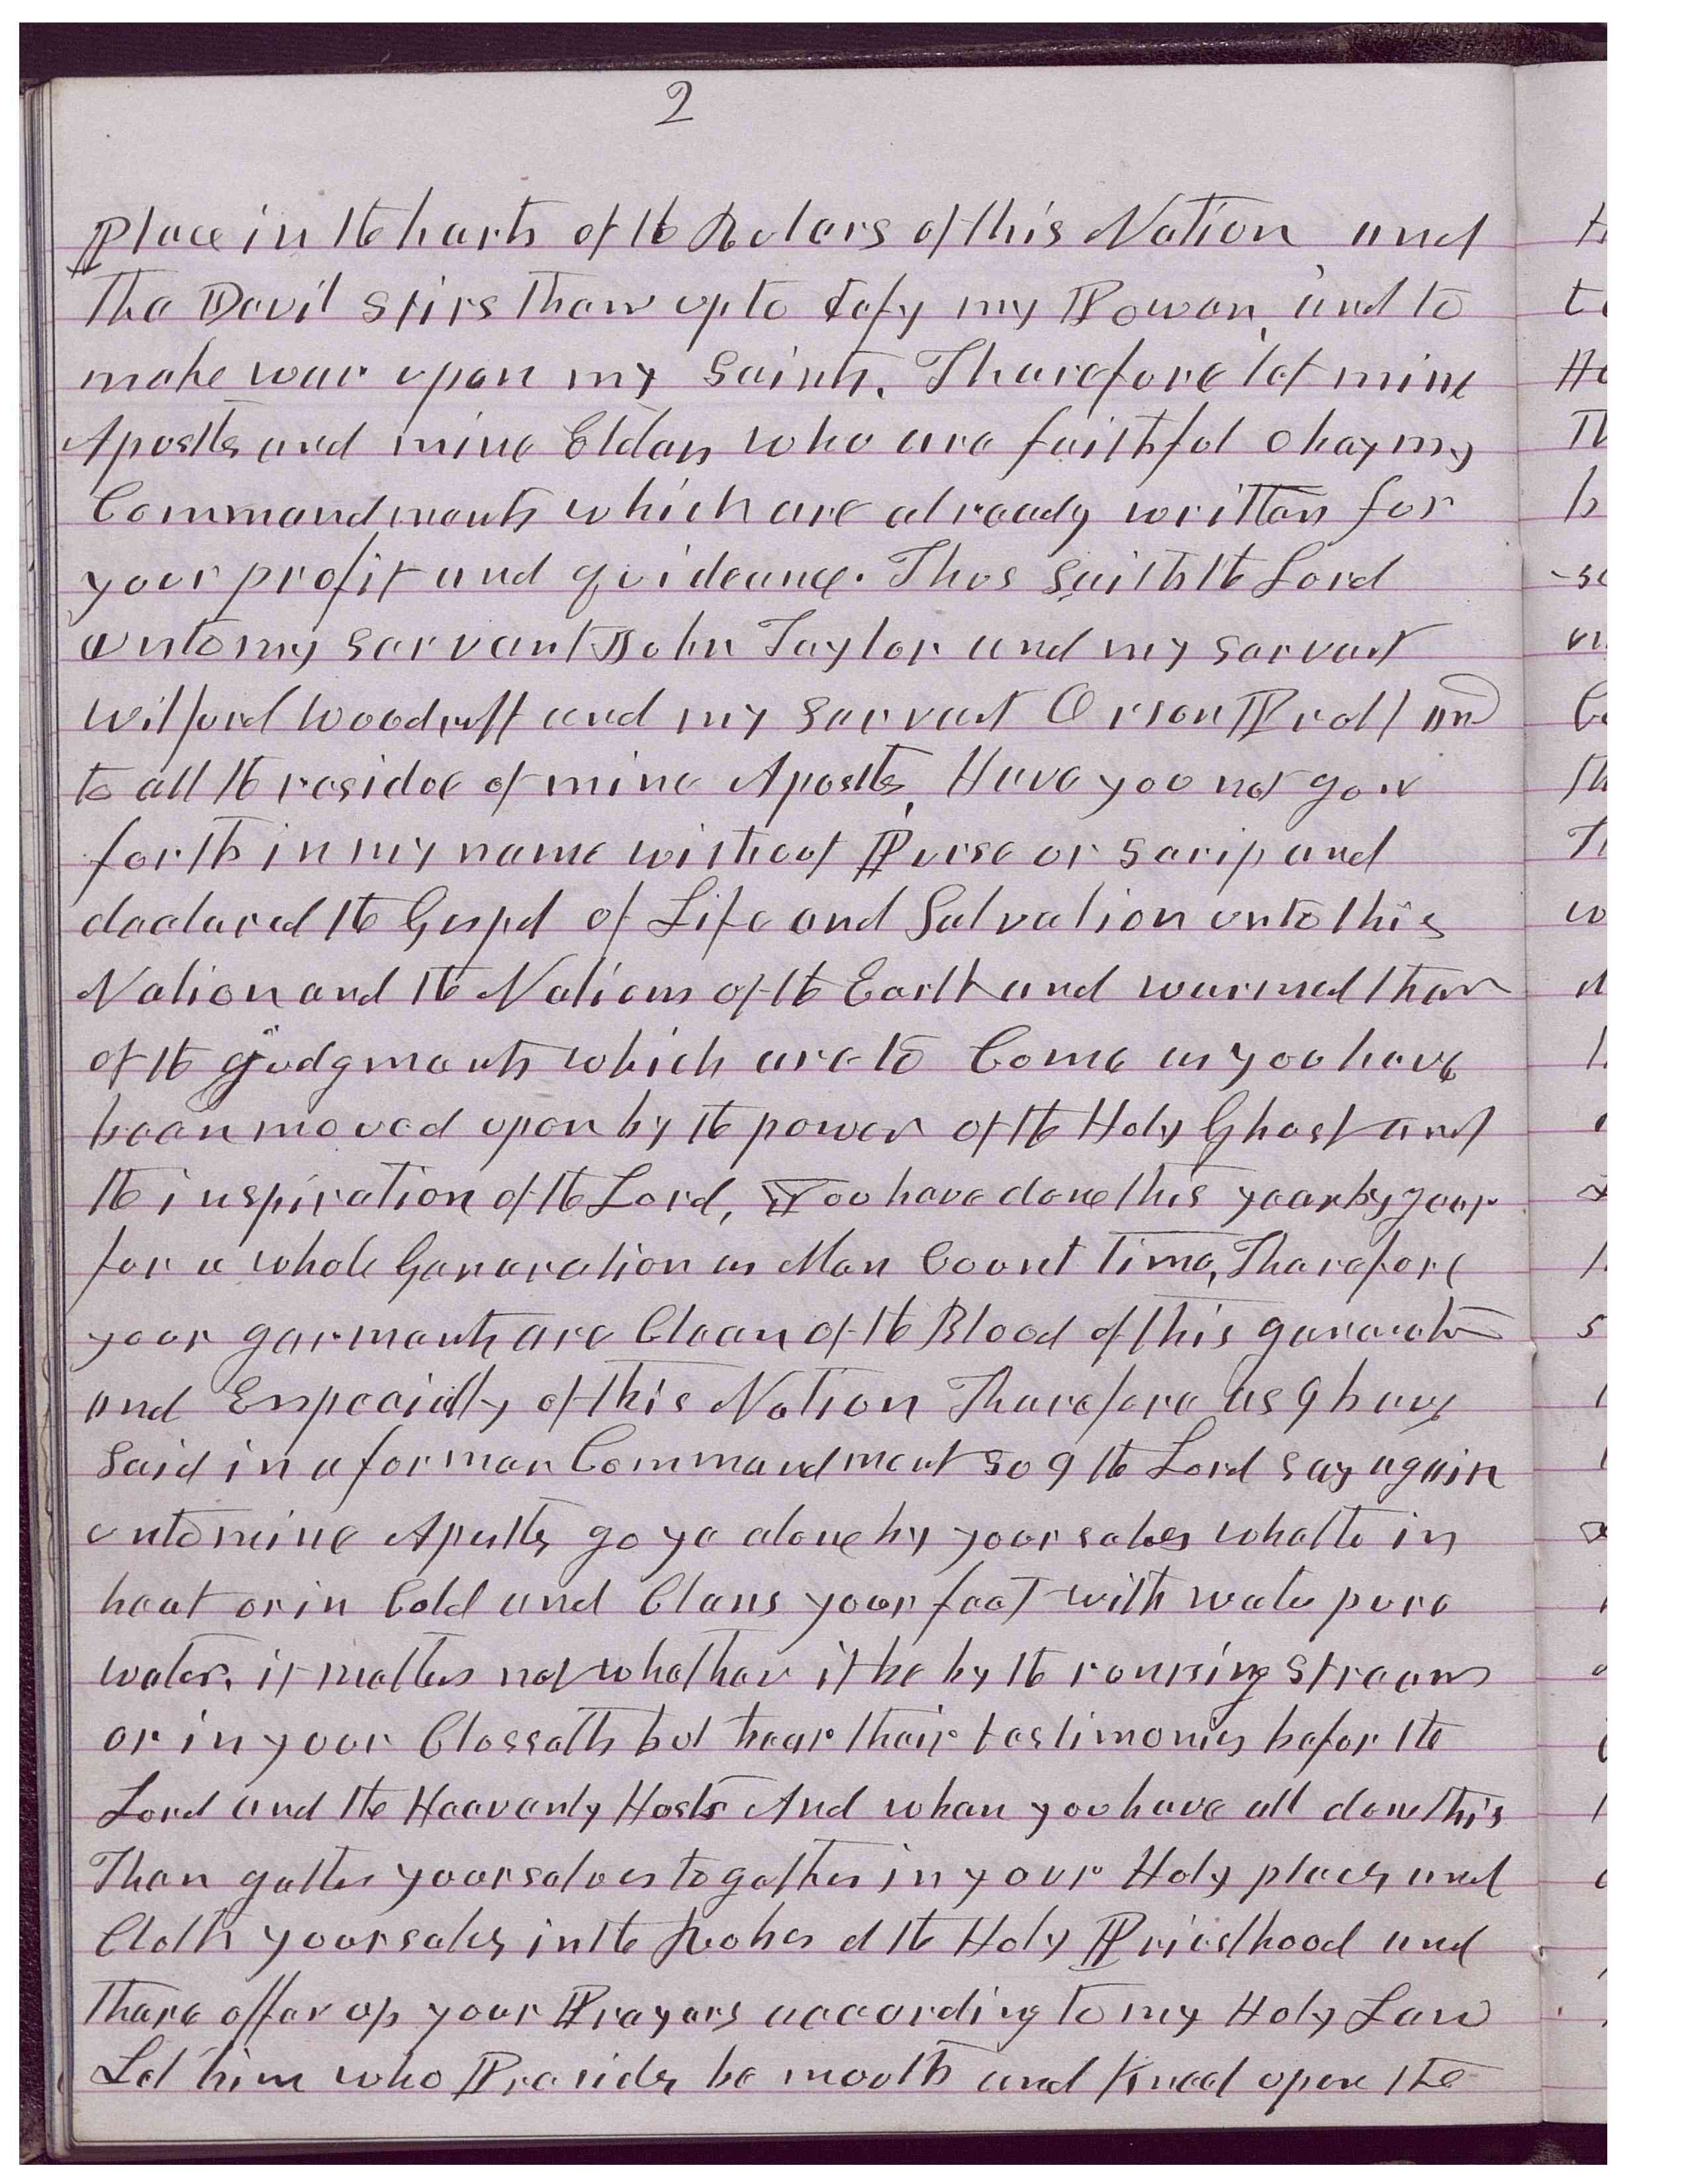 2
Place in the harts of the Rulers of this Nation and
the Devil stirs them up to defy my Power, and to
make war upon my Saints. Therefore let mine
Apostles and mine Elders who are faithful obay my
Commandments which are already written for
your profit and guideance. Thus saith the Lord
unto my servant John Taylor and my servant
Wilford Woodruff and my servant Orson Pratt and
to all the residue of mine Apostles, Have you not gone
forth in my name without Purse or scrip and
declared the Gospel of Life and Salvation unto this
Nation and the Nations of the Earth and warned them
of the judgments which are to Come as you have
been moved upon by the power of the Holy Ghost and
the inspiration of the Lord, You have done this year by year
for a whole Generation as Men Count time, Therefore
your garments are Clean of the Blood of this generation
and Especially of this Nation Therefore as I have
said in a former Commandment so I the Lord say again
unto mine Apostles go ye alone by yourselves whether in
heat or in Cold and Clens your feet with water pure
water. it matters not whether it be by the running streams
or in your Clossetts but bear their testimonies befor the
Lord and the Heavenly Hosts And when you have all done this
Then gather yourselves together in your Holy places and
Cloth yourselves in the Robes of the Holy Priesthood and
there offer up your Prayers according to my Holy Law
Let him who Presides be mouth and kneel upon the